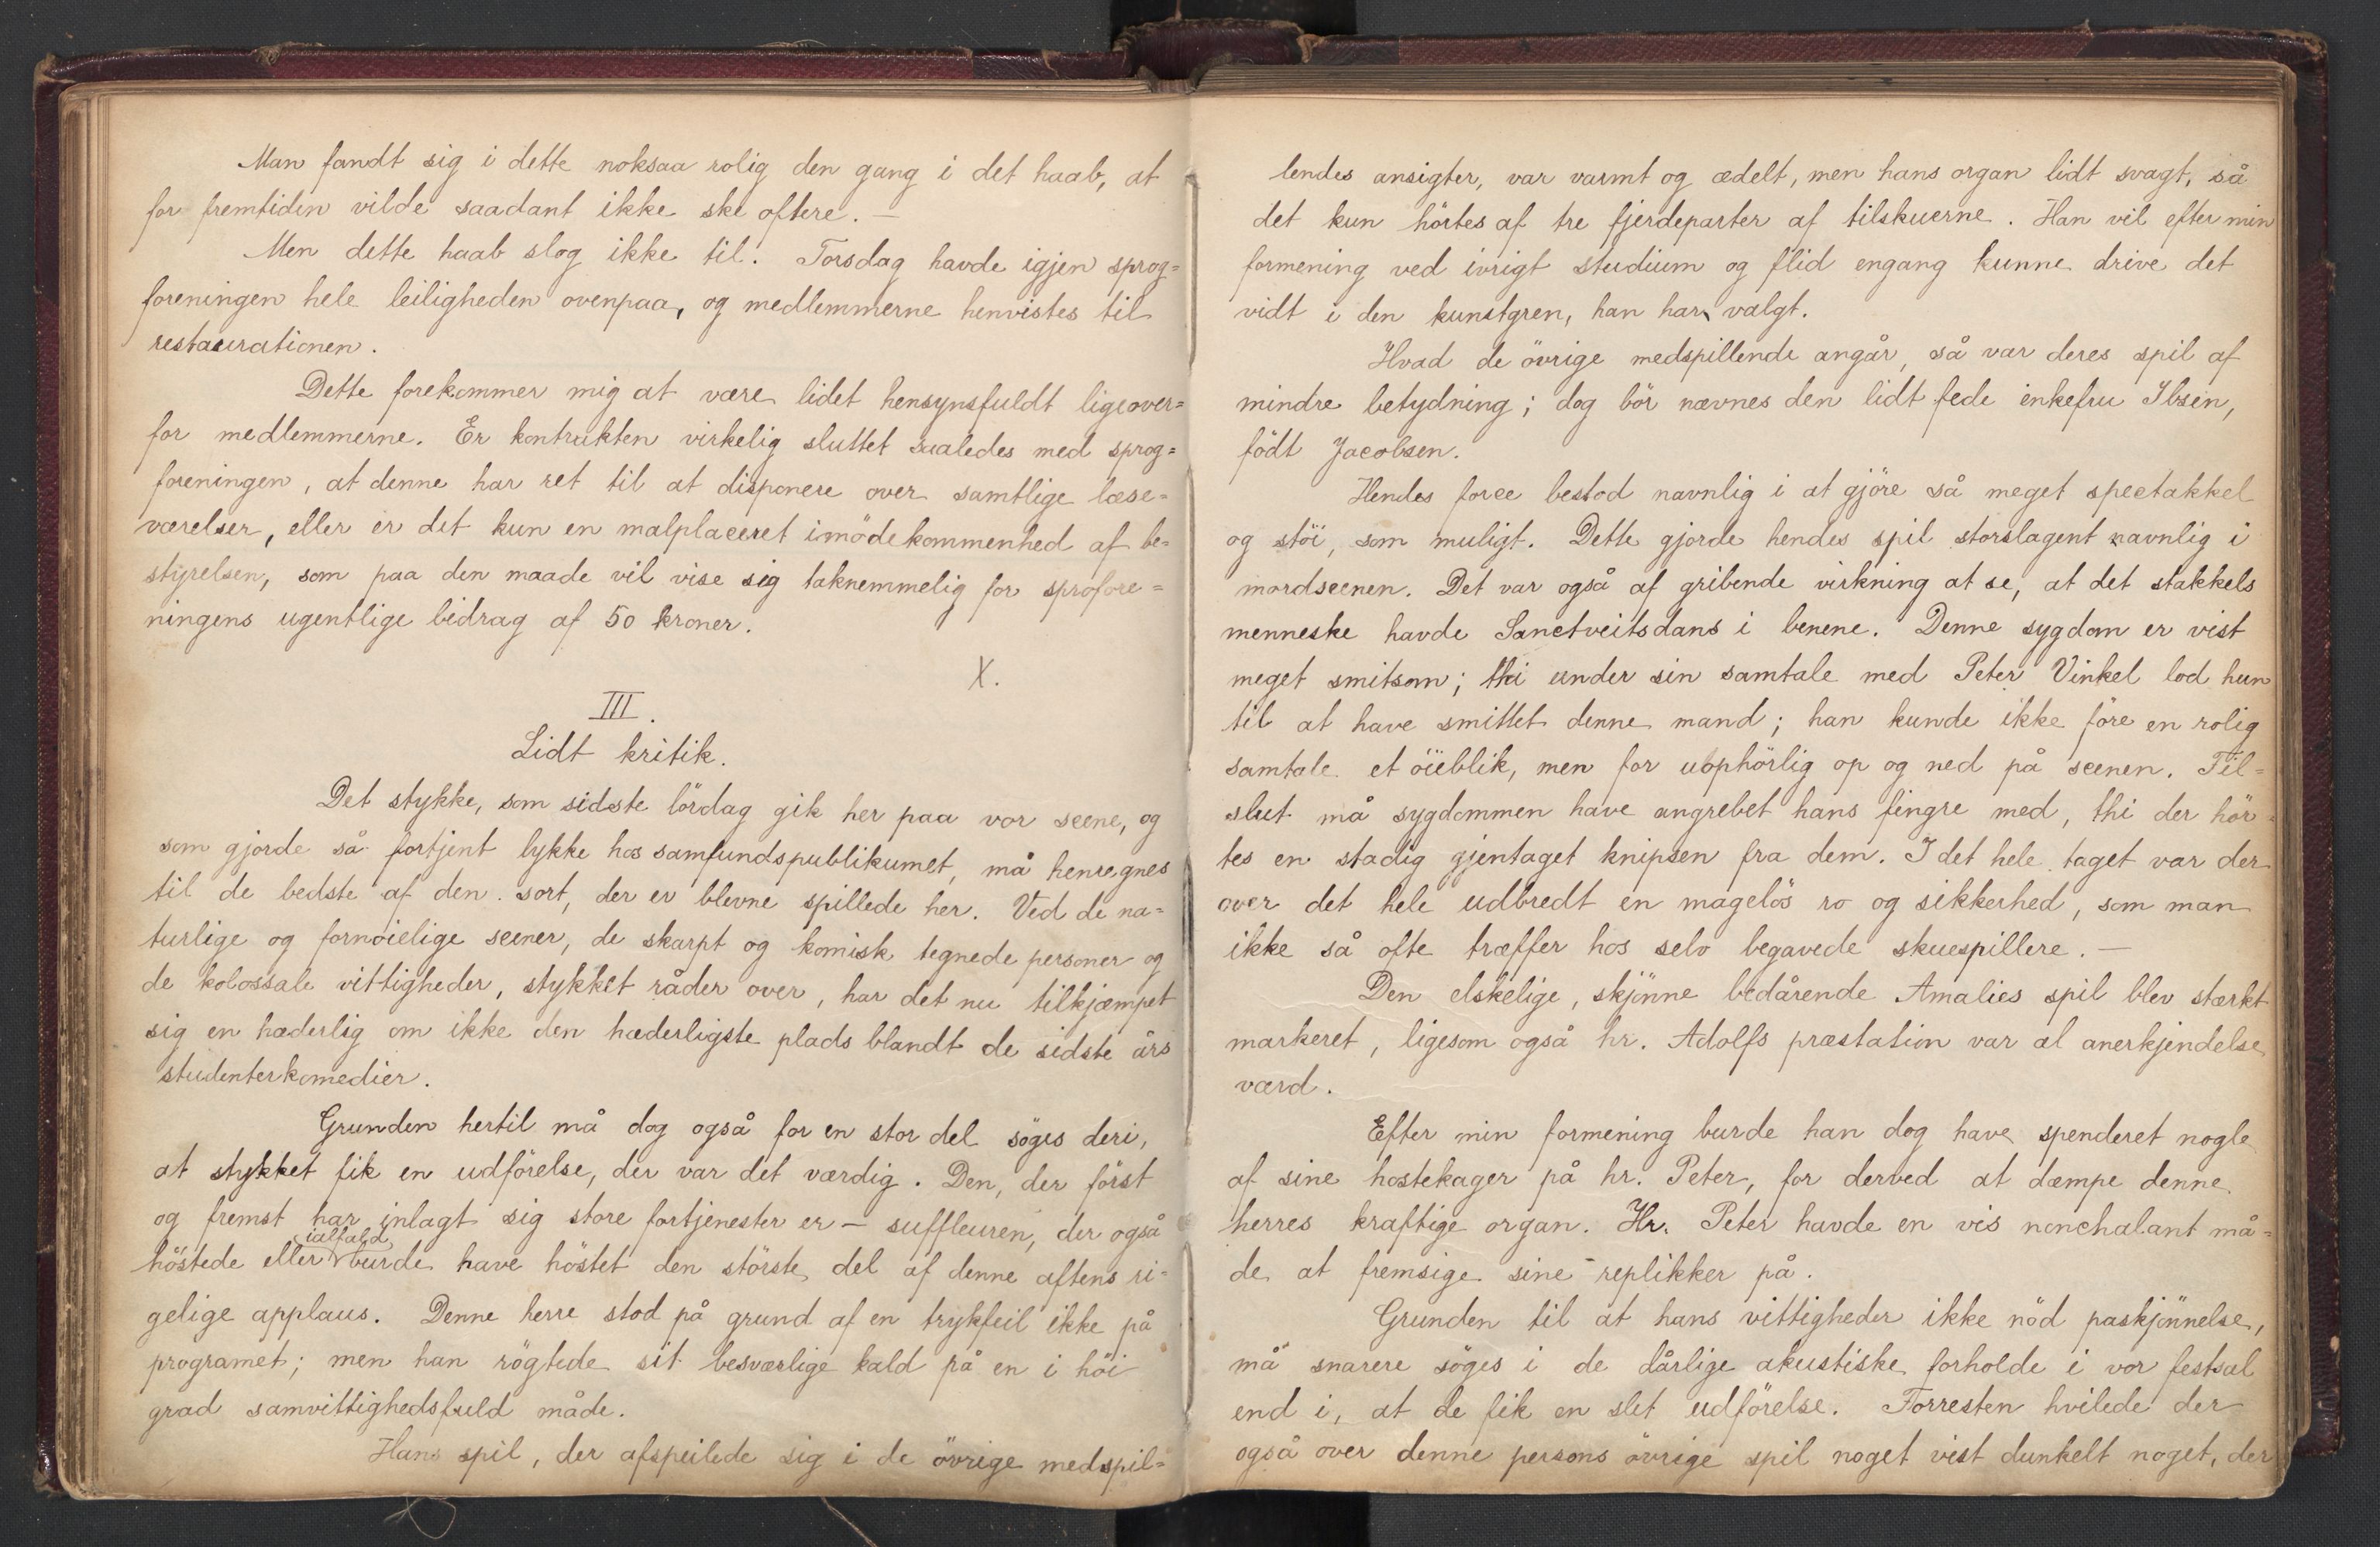 Man fandt sig i dette noksaa rolig den gang i det haab, at
for fremtiden vilde saadant ikke ske oftere. —
Men dette haab slog ikke til. Torsdag havde igjen sprog=
foreningen hele leiligheden ovenpaa, og medlemmerne henvistes til
restaurationen.
Dette forekommer mig at være lidet hensynsfuldt ligeover=
for medlemmerne. Er kontrakten virkelig sluttet saaledes med sprog=
foreningen, at denne har ret til at disponere over samtlige læse=
værelser, eller er det kun en malplaceret imödekommenhed af be=
styrelsen, som paa den maade vil vise sig taknemmelig for sprofore=
ningens ugentlige bidrag af 50 kroner.
X.
III.
Lidt kritik.
Det stykke, som sidste lördag gik her paa vor scene, og
som gjorde så fortjent lykke hos samfundspublikumet, må henregnes
til de bedste af den sort, der er blevne spillede her. Ved de na=
turlige og fornöielige scener, de skarpt og komisk tegnede personer og
de kolossale vittigheder, stykket råder over, har det nu tilkjæmpet
sig en hæderlig om ikke den hæderligste plads blandt de sidste års
studenterkomedier.
Grunden hertil må dog også for en stor del söges deri,
at stykket fik en udförelse, der var det værdig. Den, der först
og fremst har inlagt sig store fortjenester er — suffleuren, der også
ialfald
höstede eller burde have höstet den störste del af denne aftens ri=
gelige applaus. Denne herre stod på grund af en trykfeil ikke på
programet; men han rögtede sit besværlige kald på en i höi
grad samvittighedsfuld måde.
Hans spil, der afspeilede sig i de övrige medspil=
lendes ansigter, var varmt og ædelt, men hans organ lidt svagt, så
det kun hörtes af tre fjerdeparter af tilskuerne. Han vil efter min
formening ved ivrigt studium og flid engang kunne drive det
vidt i den kunstgren, han har valgt.
Hvad de övrige medspillende angår, så var deres spil af
mindre betydning; dog bör nævnes den lidt fede enkefru Ibsen,
födt Jacobsen.
Hendes force bestod navnlig i at gjöre så meget spectakkel
og stöi, som muligt. Dette gjorde hendes spil storslagent navnlig i
mordscenen. Det var også af gribende virkning at se, at det stakkels
menneske havde Sanctveitsdans i benene. Denne sygdom er vist
meget smitsom; thi under sin samtale med Peter Vinkel lod hun
til at have smittet denne mand; han kunde ikke före en rolig
samtale et öieblik, men for uophörlig op og ned på scenen. Til=
slut må sygdommen have angrebet hans fingre med, thi der hör=
tes en stadig gjentaget knipsen fra dem. I det hele taget var der
over det hele udbredt en magelös ro og sikkerhed, som man
ikke så ofte træffer hos selv begavede skuespillere. —
Den elskelige, skjönne bedårende Amalies spil blev stærkt
markeret, ligesom også hr. Adolfs præstation var al anerkjendelse
værd.
Efter min formening burde han dog have spenderet nogle
af sine hostekager på hr. Peter, for derved at dæmpe denne
herres kraftige organ. Hr. Peter havde en vis nonchalant må=
de at fremsige sine replikker på.
Grunden til at hans vittigheder ikke nöd paskjönnelse,
må snarere söges i de dårlige akustiske forholde i vor festsal
end i, at de fik en slet udförelse. Forresten hvilede der
også over denne persons övrige spil noget vist dunkelt noget, der